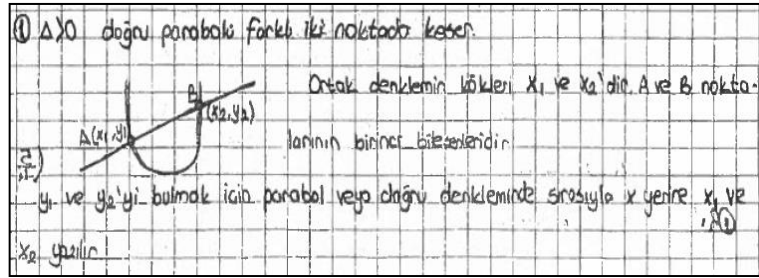 ① Δ>0 doğru parabolü farklı iki noktada keser.
Ortak denklemin kökleri x₁ ve x₂'dir. A ve B nokta-
B
(x₂,y₂)
A(x₁,y₁)
larının birinci bileşenleridir
y₁ ve y₂'yi bulmak için parabol veya doğru denkleminde sırasıyla x yerine x₁ ve
x₂ yazılır.